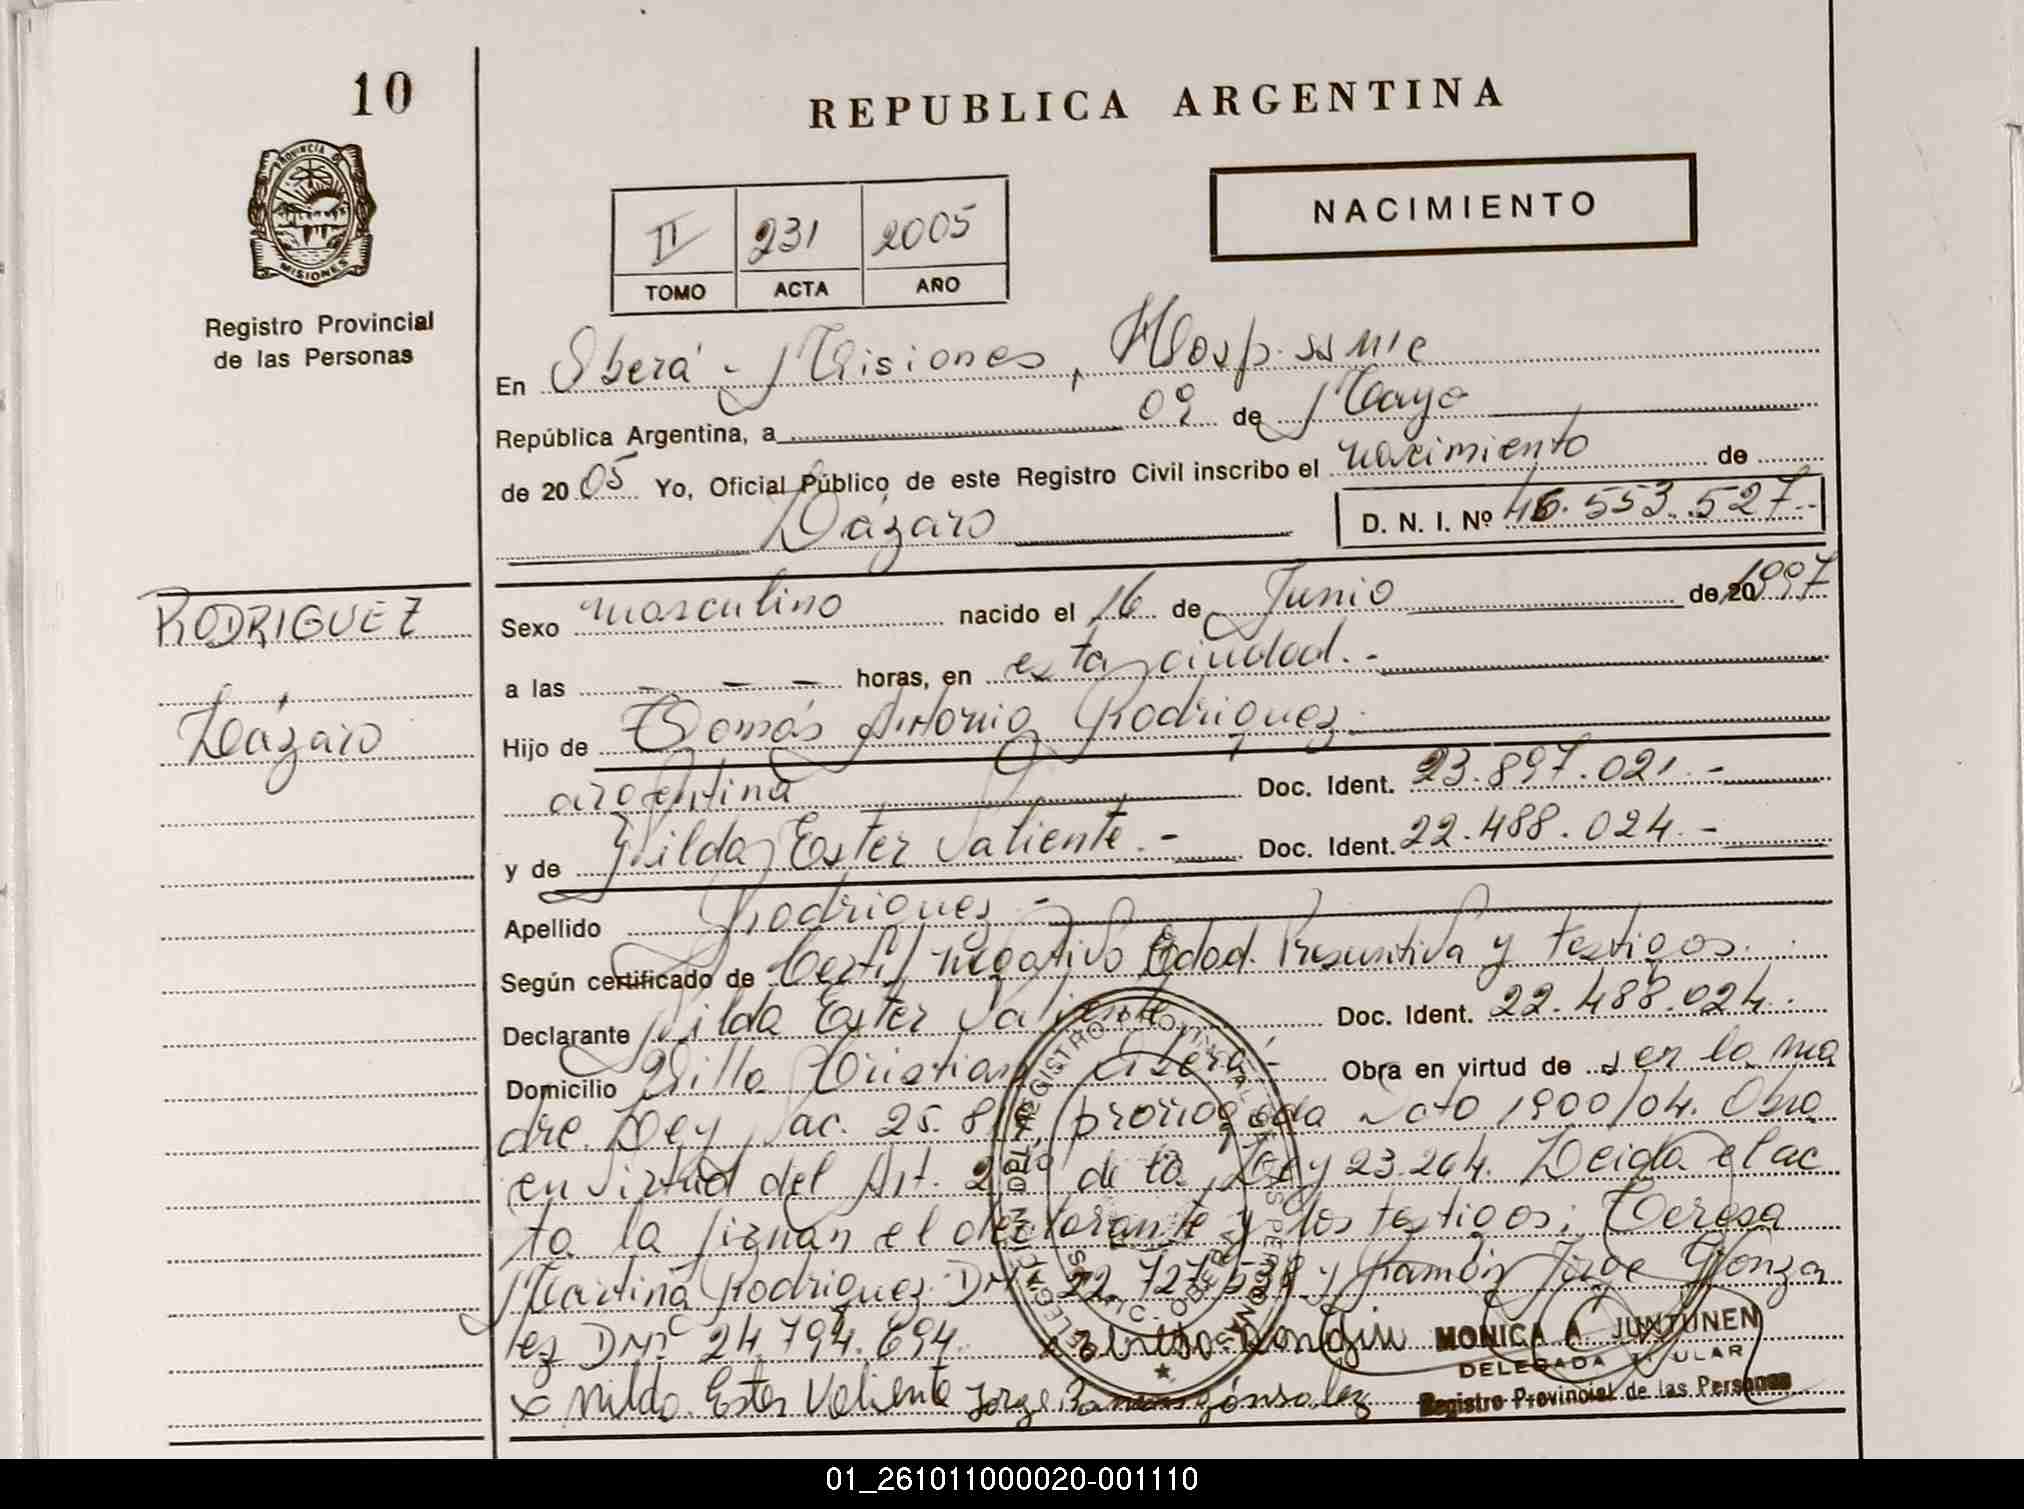 10
REPUBLICA ARGENTINA
PROVINCIA DE
MISIONES
Registro Provincial
de las Personas
II 231 2005
TOMO ACTA AÑO
NACIMIENTO
En Oberá - Misiones, Hosp. SSMIC
República Argentina, a 09 de Mayo
de 2005 Yo, Oficial Público de este Registro Civil inscribo el nacimiento de
Lázaro
D. N. I. Nº 46.553.527.-
RODRIGUEZ
Lázaro
Sexo masculino nacido el 16 de Junio de 20 1997
a las - - - horas, en esta ciudad.-
Hijo de Tomás Antonio Rodriguez.
argentina Doc. Ident. 23.897.021.-
y de Nilda Ester Valiente.- Doc. Ident. 22.488.024.-
Apellido Rodriguez.-
Según certificado de Certif. negativo Edad. Presuntiva y testigos.
Declarante Nilda Ester Valiente Doc. Ident. 22.488.024.-
Domicilio Villa Cristian Oberá.- Obra en virtud de ser la ma
dre. Ley Nac. 25.819, prorrogada Dcto 1900/04. Obra
en virtud del Art. 2 de la Ley 23.264. Leida el ac
ta la firman el declarante y los testigos: Teresa
Martina Rodriguez DNI 22.727.538 y Ramón Jorge Gonza
lez DNI 24.794.694.
MONICA A. JUNTUNEN
DELEGADA TITULAR
Registro Provincial de las Personas
x Nilda Ester Valiente Jorge Ramon gónsalez
01_261011000020-001110